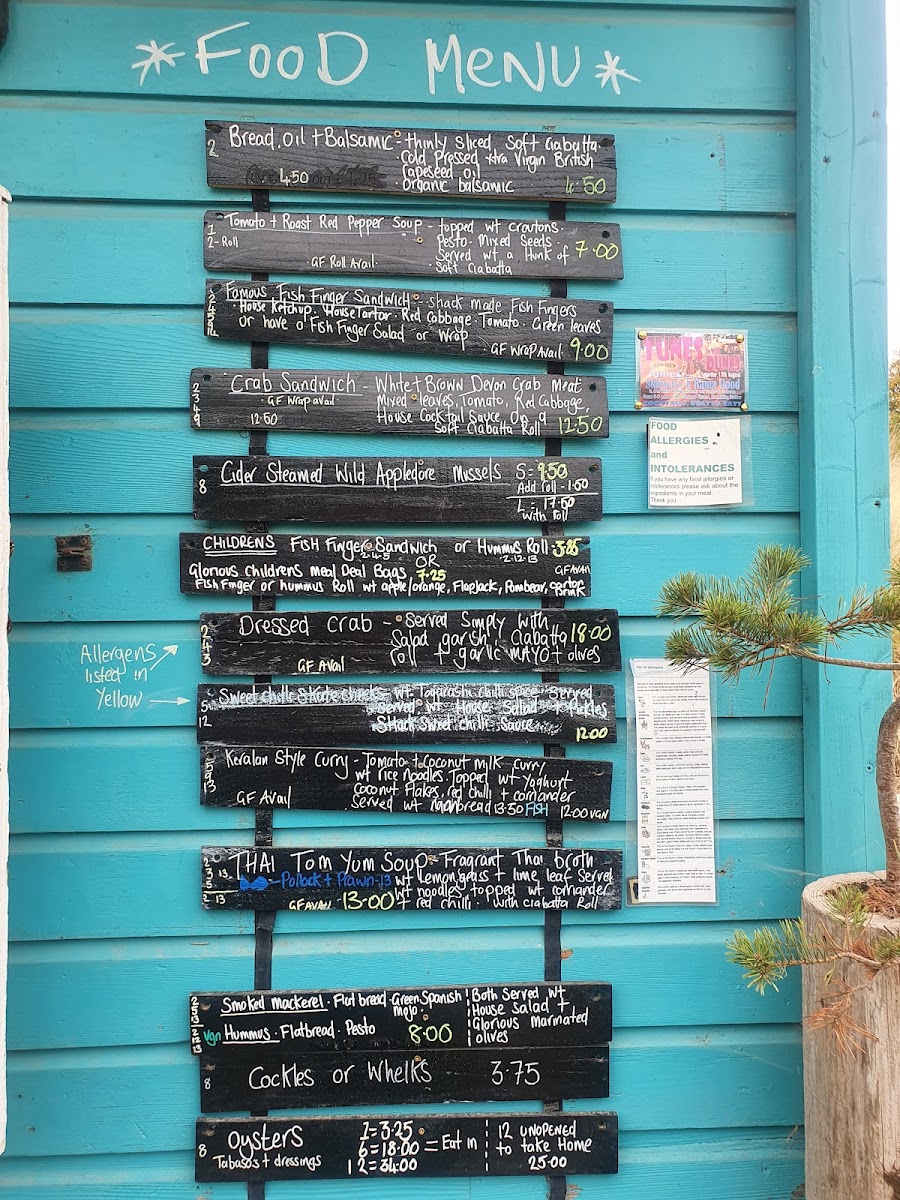 *FOOD MENU*
2 Bread, Oil + Balsamic - thinly sliced, soft ciabatta
cold pressed xtra virgin British
rapeseed oil
4.50 organic balsamic 4.50
Tomato + Roast Red Pepper Soup - topped wt croutons.
2-Roll Pesto. Mixed seeds.
Served wt a Hunk of 7.00
. GF Roll Avail. . Soft ciabatta
Famous Fish Finger Sandwich - shack made Fish Fingers
. House Ketchup. House Tartar. Red Cabbage. Tomato. Green leaves
or have a Fish Finger Salad or Wrap
. GF Wrap Avail 9.00
Crab Sandwich - White + Brown Devon Crab Meat
. GF Wrap avail. Mixed leaves, Tomato, Red Cabbage,
House Cocktail Sauce On a
12.50 Soft Ciabatta Roll 12.50
8 Cider Steamed Wild Appledore Mussels S = 9.50
Add roll - 1.50
L = 17.50
with roll
CHILDRENS Fish Finger Sandwich or Hummus Roll 3.25
2.4.5 OR 2.12.13
Glorious childrens meal Deal Bags 7.25 GF Avail
Fish Finger or hummus Roll wt apple/orange, Flapjack, Pombear, carton
Drink
Dressed Crab - Served Simply with
Salad garish, Ciabatta 18.00
GF Avail roll + garlic MAYO + olives
Allergens
listed in
Yellow
Sweet chilli Skate cheeks wt Togarashi chilli spice Served
5 Served wt House Salad + Pickles
12 Shack Sweet chilli Sauce 12.00
Keralan Style Curry - Tomato + Coconut milk curry
wt rice noodles. Topped wt Yoghurt
Coconut Flakes, red chilli + coriander
GF Avail Served wt naanbread 13.50 FISH 12.00 VGN
THAI Tom Yum Soup - Fragrant Thai broth
- Pollock + Prawn - 13 wt lemongrass + lime leaf Served
wt noodles, topped wt coriander
GF Avail 13.00 + red chilli. with Ciabatta Roll
Smoked Mackerel. Flat bread. Green Spanish
mojo.
vgn Hummus. Flatbread. Pesto 8.00
Both Served wt
House Salad +
Glorious marinated
olives
8 Cockles or Whelks 3.75
8 Oysters
Tabasco's + dressings
1 = 3.25
6 = 18.00 = Eat in
12 = 34.00
12 UNOPENED
to take Home
25.00
TUNES
FOOD
ALLERGIES
and
INTOLERANCES
If you have any food allergies or
intolerances please ask about the
ingredients in your meal.
Thank you